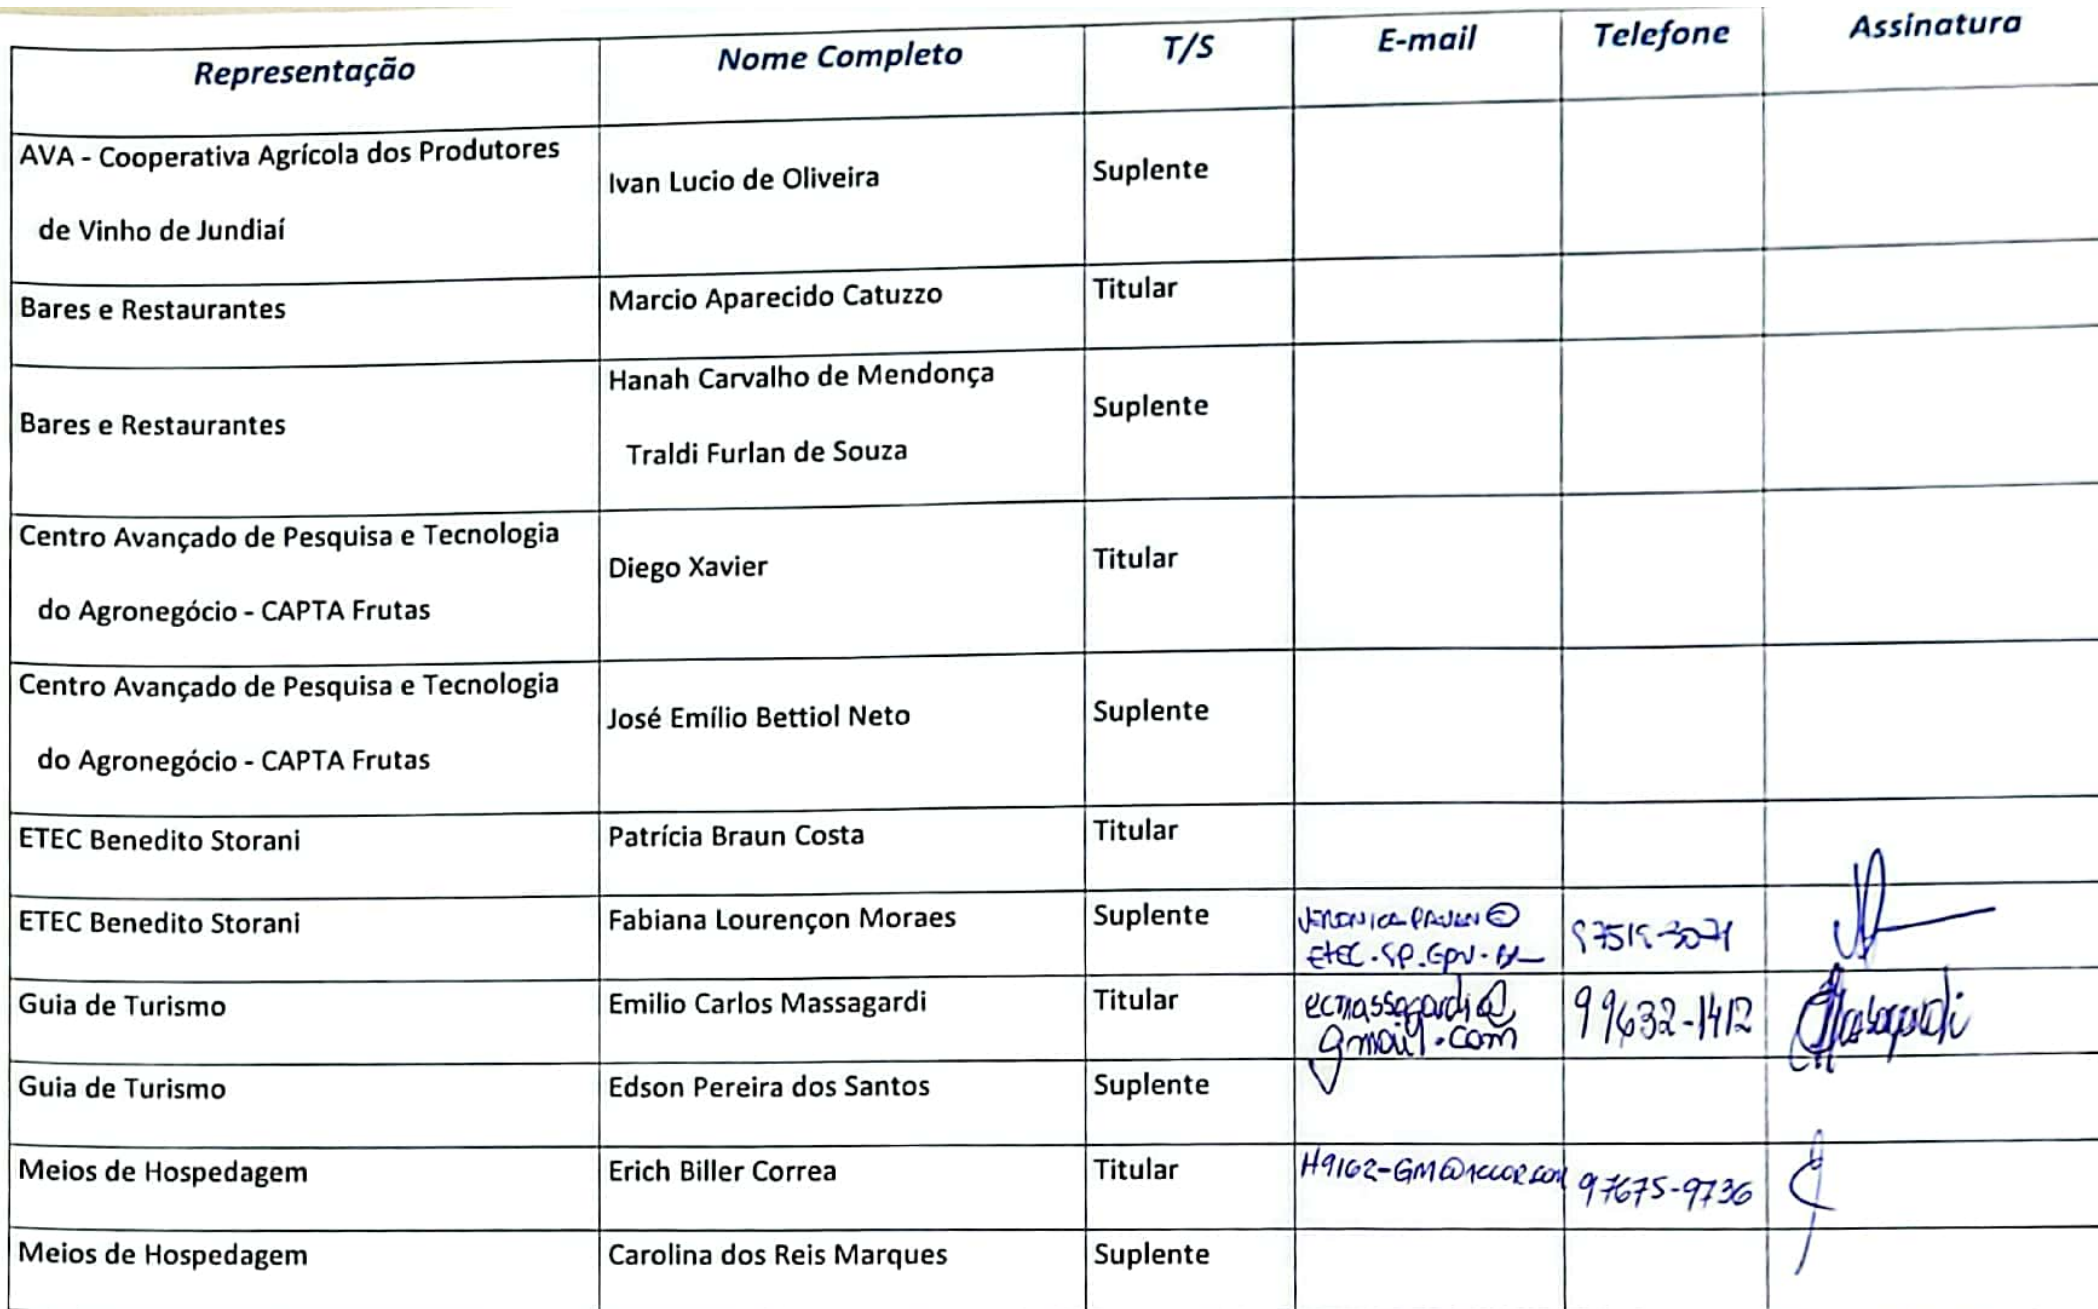 Representação Nome Completo T/S E-mail Telefone Assinatura
AVA - Cooperativa Agrícola dos Produtores
de Vinho de Jundiaí
Ivan Lucio de Oliveira
Suplente
Bares e Restaurantes
Marcio Aparecido Catuzzo
Titular
Bares e Restaurantes
Hanah Carvalho de Mendonça
Traldi Furlan de Souza
Suplente
Centro Avançado de Pesquisa e Tecnologia
do Agronegócio - CAPTA Frutas
Diego Xavier
Titular
Centro Avançado de Pesquisa e Tecnologia
do Agronegócio - CAPTA Frutas
José Emílio Bettiol Neto
Suplente
ETEC Benedito Storani
Patrícia Braun Costa
Titular
ETEC Benedito Storani
Fabiana Lourençon Moraes
Suplente
Guia de Turismo
Emilio Carlos Massagardi
Titular
ecmassagardi@
gmail.com
99632-1412
Guia de Turismo
Edson Pereira dos Santos
Suplente
Meios de Hospedagem
Erich Biller Correa
Titular
H9162-GM@accor.com
97675-9736
Meios de Hospedagem
Carolina dos Reis Marques
Suplente